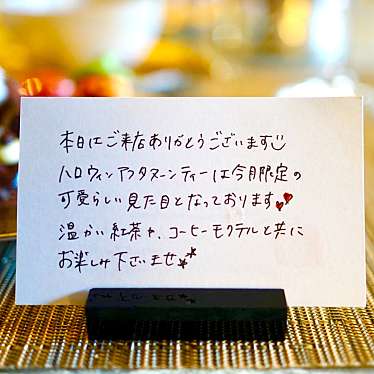 本日はご来店ありがとうございます☺
ハロウィンアフタヌーンティーは今月限定の
可愛らしい見た目となっております♥♥
温かい紅茶や、コーヒーモクテルと共に
お楽しみ下さいませ**